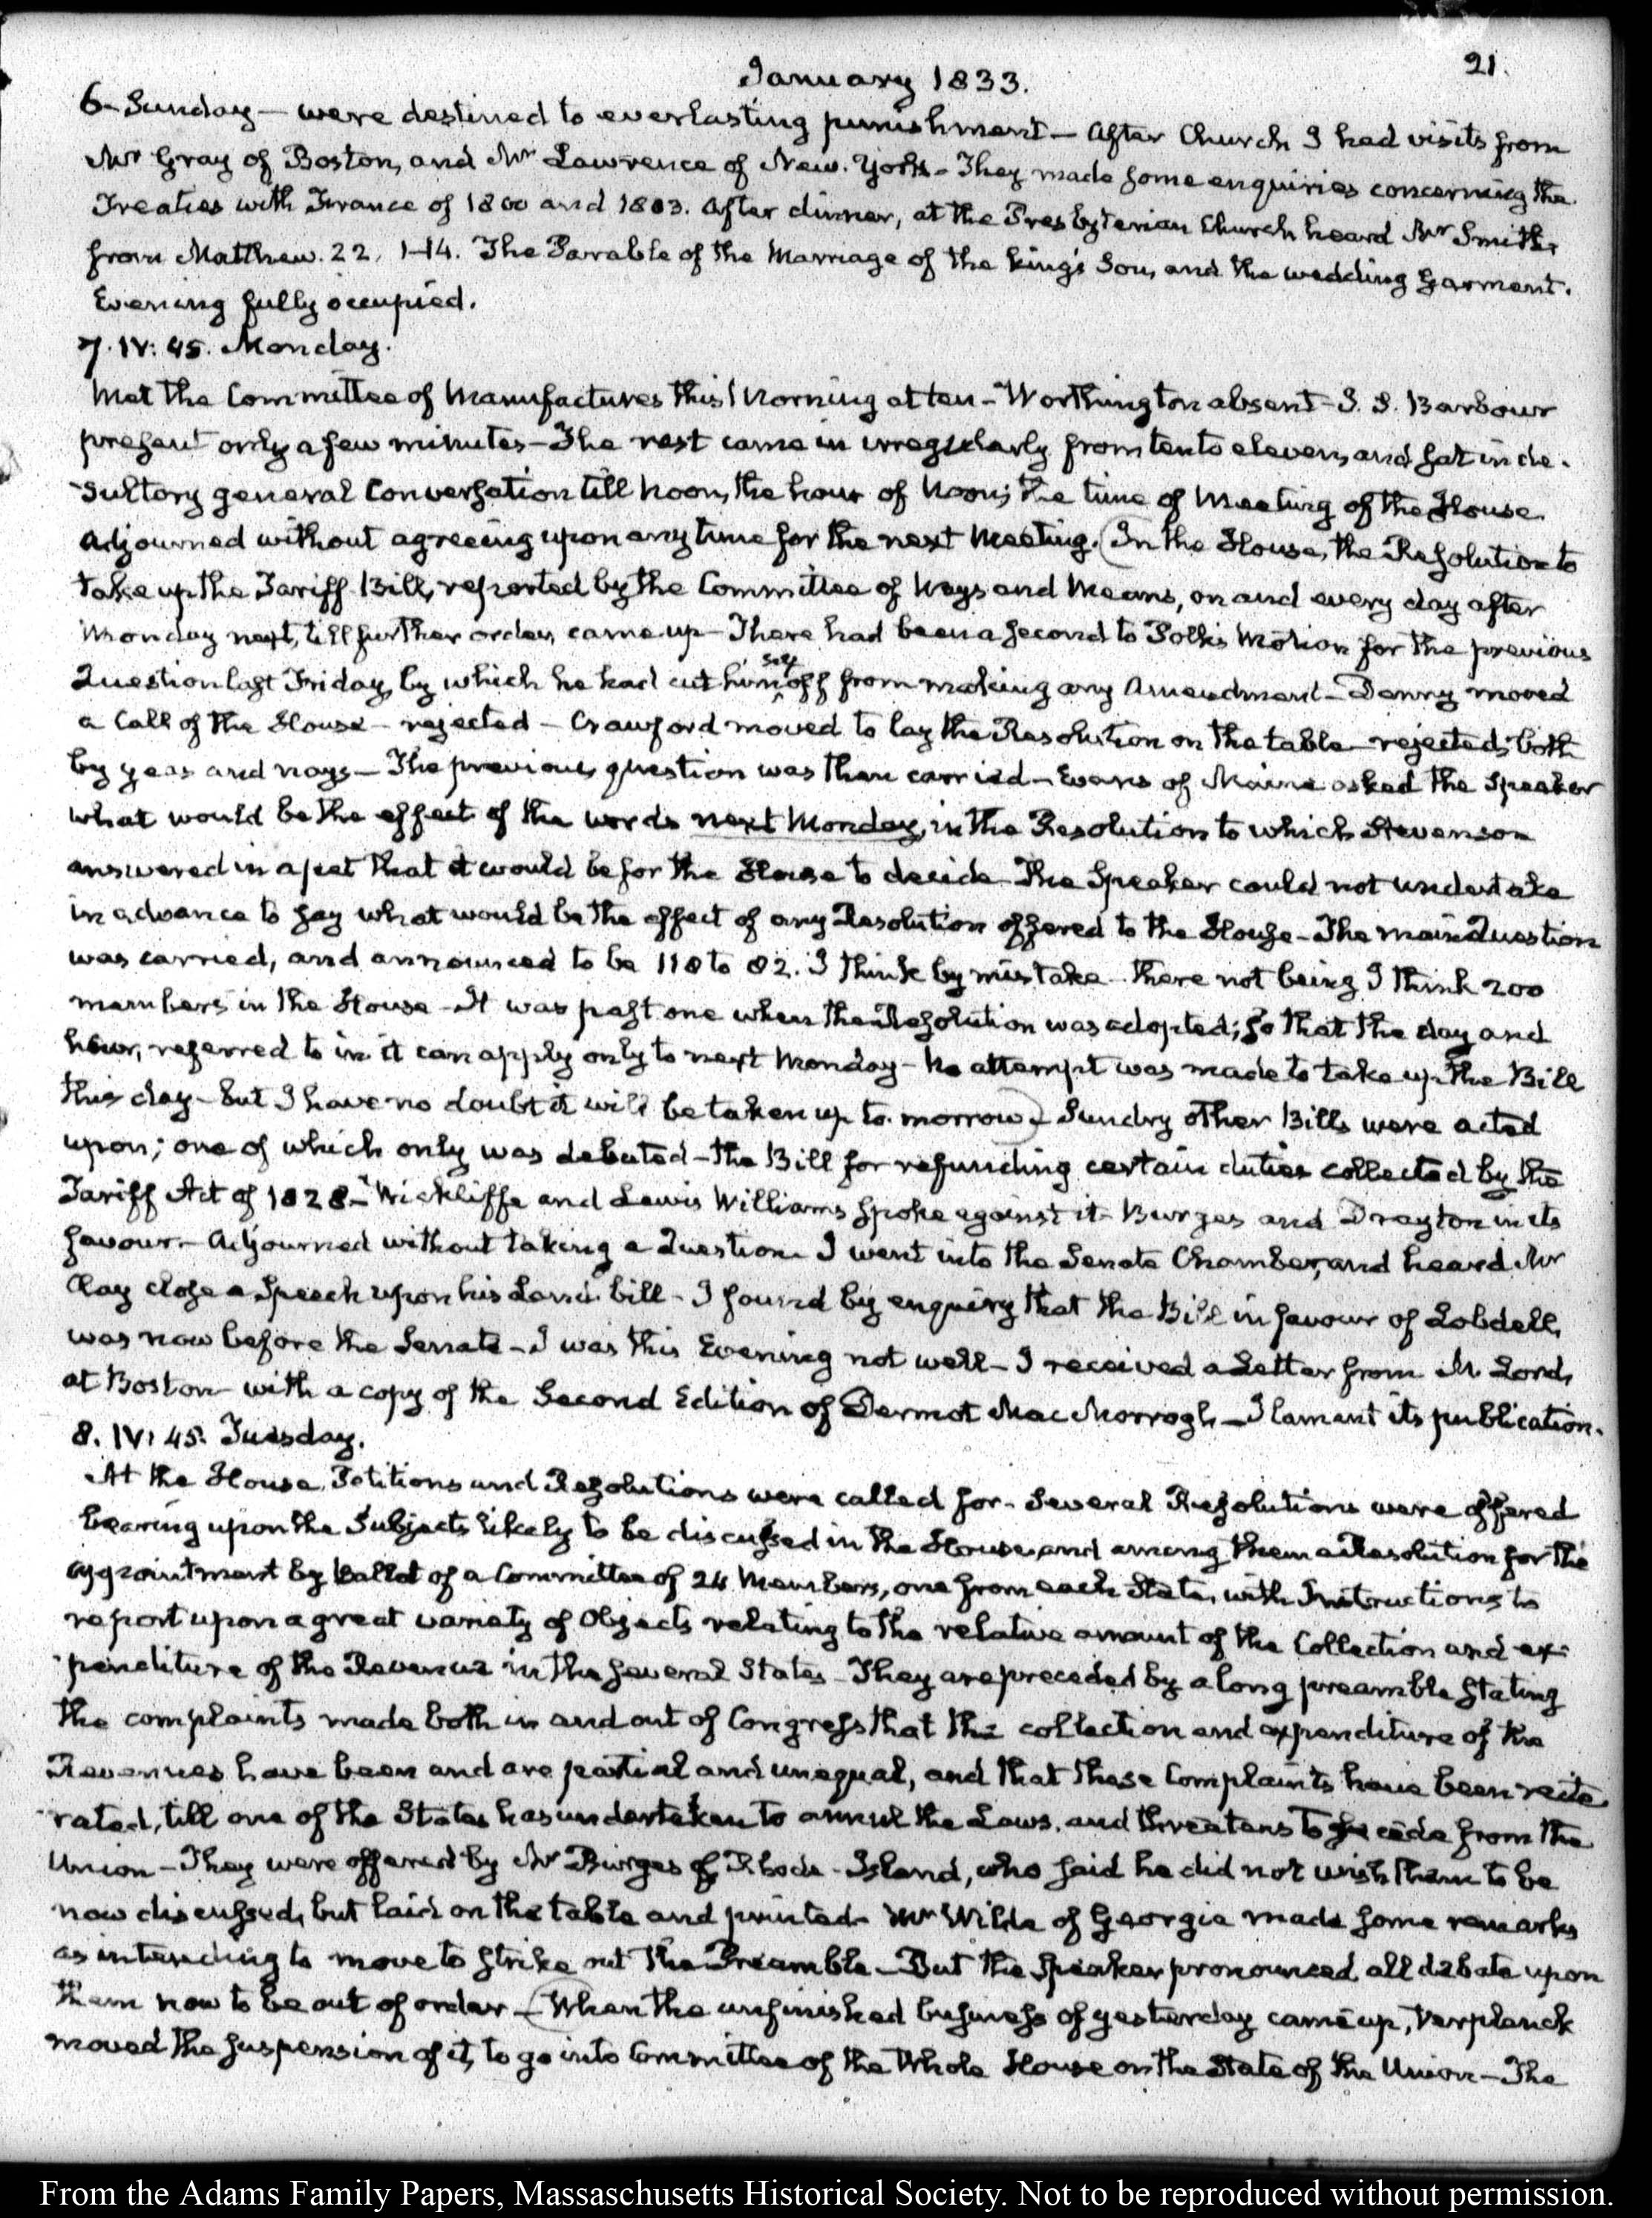 21.
January 1833.
6. Sunday — were destined to everlasting punishment — After Church I had visits from
Mr Gray of Boston, and Mr Lawrence of New-York — They made some enquiries concerning the
Treaties with France of 1800 and 1803. After dinner, at the Presbyterian Church heard Mr Smith,
from Matthew. 22, 1-14. The Parable of the Marriage of the king's Son, and the wedding Garment.
Evening fully occupied.
7. IV: 45. Monday.
Met the Committee of Manufactures this Morning at ten — Worthington absent — J. S. Barbour
present only a few minutes — The rest came in irregularly from ten to eleven, and sat in de-
sultory general Conversation till noon, the hour of Noon; the time of Meeting of the House
Adjourned without agreeing upon any time for the next Meeting. (In the House, the Resolution to
take up the Tariff Bill, reported by the Committee of Ways and Means, on and every day after
Monday next, till further order, came up — There had been a second to Polk's Motion for the previous
Question last Friday, by which he had cut himself off from making any Amendment — Denny moved
a Call of the House — rejected — Crawford moved to lay the Resolution on the table — rejected, both
by yeas and nays — The previous question was then carried — Evans of Maine asked the Speaker
what would be the effect of the words next Monday, in the Resolution to which Stevenson
answered in a pet that it would be for the House to decide — The Speaker could not undertake
in advance to say what would be the effect of any Resolution offered to the House — The main Question
was carried, and announced to be 118 to 82. I think by mistake — there not being I think 200
members in the House — It was past one when the Resolution was adopted; so that the day and
hour, referred to in it can apply only to next Monday — No attempt was made to take up the Bill
this day — but I have no doubt it will be taken up to-morrow) — Sundry other Bills were acted
upon; one of which only was debated — the Bill for refunding certain duties collected by the
Tariff Act of 1828 — Wickliffe and Lewis Williams spoke against it — Burges and Drayton in its
favour — Adjourned without taking a Question. I went into the Senate Chamber, and heard Mr
Clay close a Speech upon his Land bill — I found by enquiry that the Bill in favour of Lobdell,
was now before the Senate — I was this Evening not well — I received a Letter from M. Lord,
at Boston — with a copy of the Second Edition of Dermot MacMorrogh — I lament its publication.
8. IV: 45. Tuesday.
At the House, Petitions and Resolutions were called for — Several Resolutions were offered
bearing upon the Subjects likely to be discussed in the House, and among them a Resolution for the
appointment by Ballot of a Committee of 24 Members, one from each State, with Instructions to
report upon a great variety of Objects relating to the relative amount of the Collection and ex-
penditure of the Revenue in the several States — They are preceded by a long preamble stating
the complaints made both in and out of Congress that the collection and expenditure of the
Revenues have been and are partial and unequal, and that these Complaints have been reite-
rated, till one of the States has undertaken to annul the Laws, and threatens to secede from the
Union — They were offered by Mr Burges of Rhode-Island, who said he did not wish them to be
now discussed, but laid on the table and printed — Mr Wilde of Georgia made some remarks
as intending to move to strike out the Preamble — But the Speaker pronounced all debate upon
them now to be out of order — (When the unfinished business of yesterday came up, Verplanck
moved the suspension of it, to go into Committee of the Whole House on the State of the Union — The
From the Adams Family Papers, Massaschusetts Historical Society. Not to be reproduced without permission.